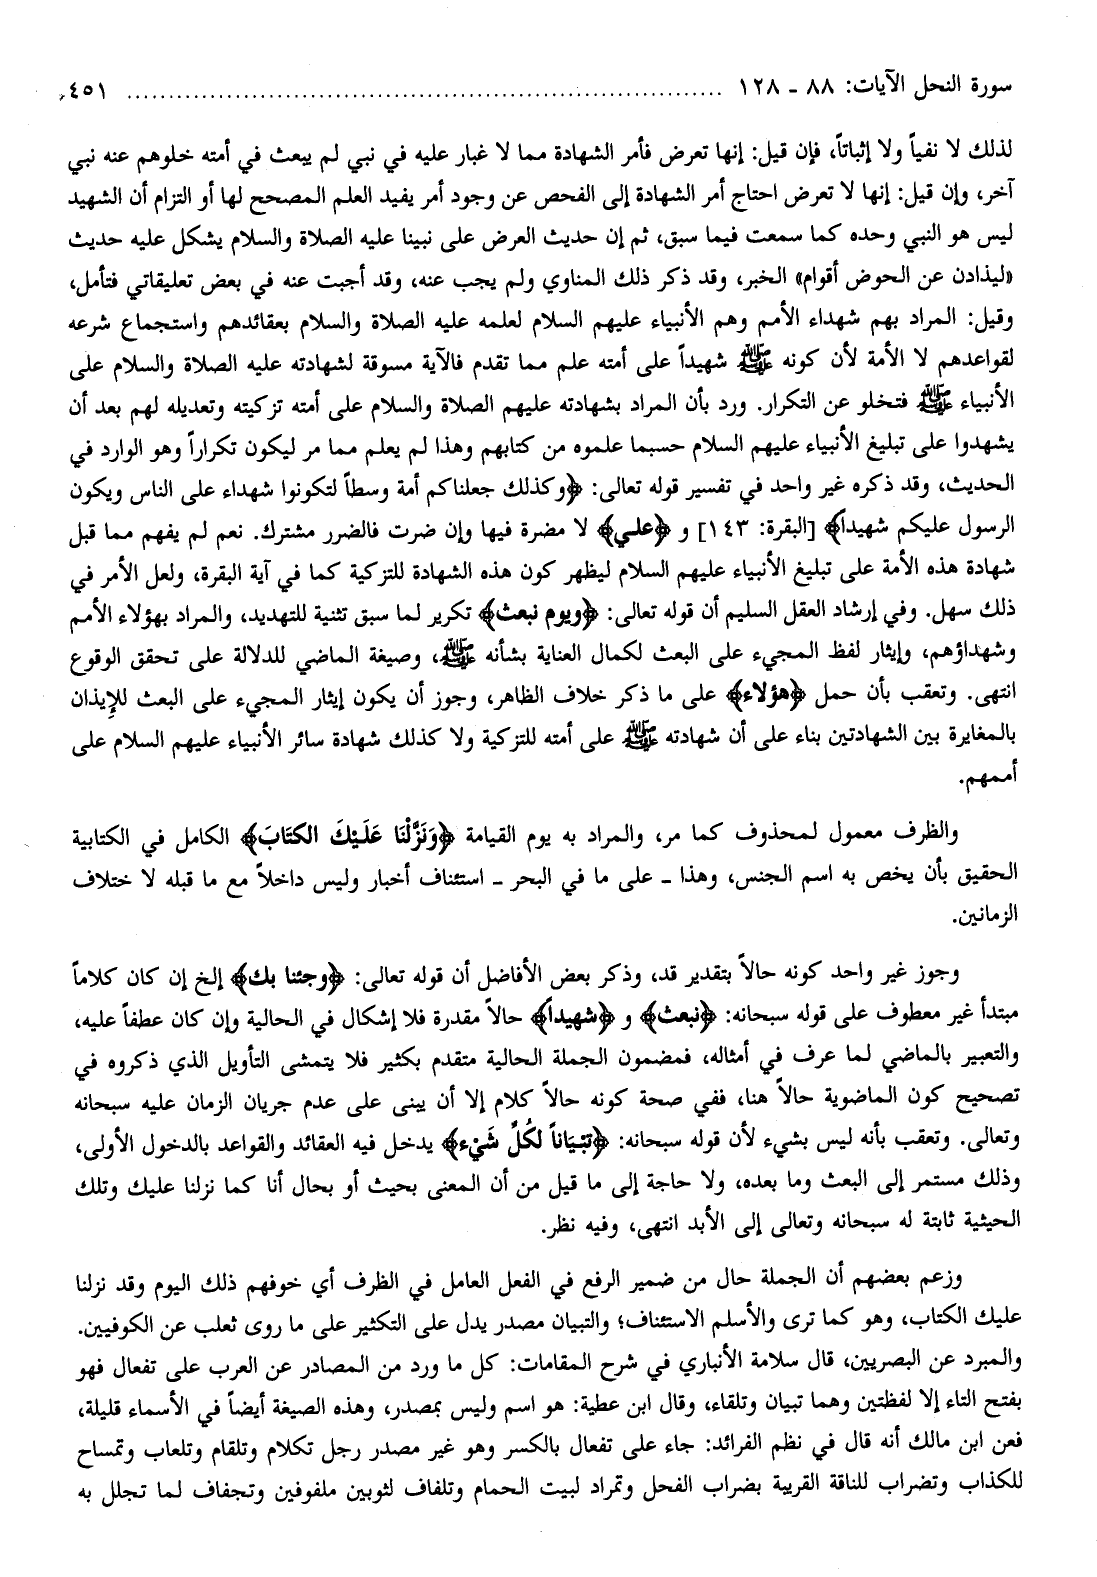 سورة النحل الآيات: ٨٨ - ١٢٨ ........................................ ٤٥١
لذلك لا نفياً ولا إثباتاً، فإن قيل: إنها تعرض فأمر الشهادة مما لا غبار عليه في نبي لم يبعث في أمته خلوهم عنه نبي
آخر، وإن قيل: إنها لا تعرض احتاج أمر الشهادة إلى الفحص عن وجود أمر يفيد العلم المصحح لها أو التزام أن الشهيد
ليس هو النبي وحده كما سمعت فيما سبق، ثم إن حديث العرض على نبينا عليه الصلاة والسلام يشكل عليه حديث
«ليذادن عن الحوض أقوام» الخبر، وقد ذكر ذلك المناوي ولم يجب عنه، وقد أجبت عنه في بعض تعليقاتي فتأمل،
وقيل: المراد بهم شهداء الأمم وهم الأنبياء عليهم السلام لعلمه عليه الصلاة والسلام بعقائدهم واستجماع شرعه
لقواعدهم لا الأمة لأن كونه ﷺ شهيداً على أمته علم مما تقدم فالآية مسوقة لشهادته عليه الصلاة والسلام على
الأنبياء ﷺ فتخلو عن التكرار. ورد بأن المراد بشهادته عليهم الصلاة والسلام على أمته تزكيته وتعديله لهم بعد أن
يشهدوا على تبليغ الأنبياء عليهم السلام حسبما علموه من كتابهم وهذا لم يعلم مما مر ليكون تكراراً وهو الوارد في
الحديث، وقد ذكره غير واحد في تفسير قوله تعالى: ﴿وكذلك جعلناكم أمة وسطاً لتكونوا شهداء على الناس ويكون
الرسول عليكم شهيداً﴾ [البقرة: ١٤٣] و ﴿علي﴾ لا مضرة فيها وإن ضرت فالضرر مشترك. نعم لم يفهم مما قبل
شهادة هذه الأمة على تبليغ الأنبياء عليهم السلام ليظهر كون هذه الشهادة للتزكية كما في آية البقرة، ولعل الأمر في
ذلك سهل. وفي إرشاد العقل السليم أن قوله تعالى: ﴿ويوم نبعث﴾ تكرير لما سبق تثنية للتهديد، والمراد بهؤلاء الأمم
وشهداؤهم، وإيثار لفظ المجيء على البعث لكمال العناية بشأنه ﷺ، وصيغة الماضي للدلالة على تحقق الوقوع
انتهى. وتعقب بأن حمل ﴿هؤلاء﴾ على ما ذكر خلاف الظاهر، وجوز أن يكون إيثار المجيء على البعث للإيذان
بالمغايرة بين الشهادتين بناء على أن شهادته ﷺ على أمته للتزكية ولا كذلك شهادة سائر الأنبياء عليهم السلام على
أممهم.
والظرف معمول لمحذوف كما مر، والمراد به يوم القيامة ﴿وَنَزَّلْنَا عَلَيْكَ الكتَابَ﴾ الكامل في الكتابية
الحقيق بأن يخص به اسم الجنس، وهذا ـ على ما في البحر ـ استئناف أخبار وليس داخلاً مع ما قبله لا ختلاف
الزمانين.
وجوز غير واحد كونه حالاً بتقدير قد، وذكر بعض الأفاضل أن قوله تعالى: ﴿وجئنا بك﴾ إلخ إن كان كلاماً
مبتدأ غير معطوف على قوله سبحانه: ﴿نبعث﴾ و ﴿شهيداً﴾ حالاً مقدرة فلا إشكال في الحالية وإن كان عطفاً عليه،
والتعبير بالماضي لما عرف في أمثاله، فمضمون الجملة الحالية متقدم بكثير فلا يتمشى التأويل الذي ذكروه في
تصحيح كون الماضوية حالاً هنا، ففي صحة كونه حالاً كلام إلا أن يبنى على عدم جريان الزمان عليه سبحانه
وتعالى. وتعقب بأنه ليس بشيء لأن قوله سبحانه: ﴿تبْيَاناً لكُلِّ شَيْء﴾ يدخل فيه العقائد والقواعد بالدخول الأولى،
وذلك مستمر إلى البعث وما بعده، ولا حاجة إلى ما قيل من أن المعنى بحيث أو بحال أنا كما نزلنا عليك وتلك
الحيثية ثابتة له سبحانه وتعالى إلى الأبد انتهى، وفيه نظر.
وزعم بعضهم أن الجملة حال من ضمير الرفع في الفعل العامل في الظرف أي خوفهم ذلك اليوم وقد نزلنا
عليك الكتاب، وهو كما ترى والأسلم الاستئناف؛ والتبيان مصدر يدل على التكثير على ما روى ثعلب عن الكوفيين.
والمبرد عن البصريين، قال سلامة الأنباري في شرح المقامات: كل ما ورد من المصادر عن العرب على تفعال فهو
بفتح التاء إلا لفظتين وهما تبيان وتلقاء، وقال ابن عطية: هو اسم وليس بمصدر، وهذه الصيغة أيضاً في الأسماء قليلة،
فعن ابن مالك أنه قال في نظم الفرائد: جاء على تفعال بالكسر وهو غير مصدر رجل تكلام وتلقام وتلعاب وتمساح
للكذاب وتضراب للناقة القريبة بضراب الفحل وتمراد لبيت الحمام وتلفاف لثوبين ملفوفين وتجفاف لما تجلل به